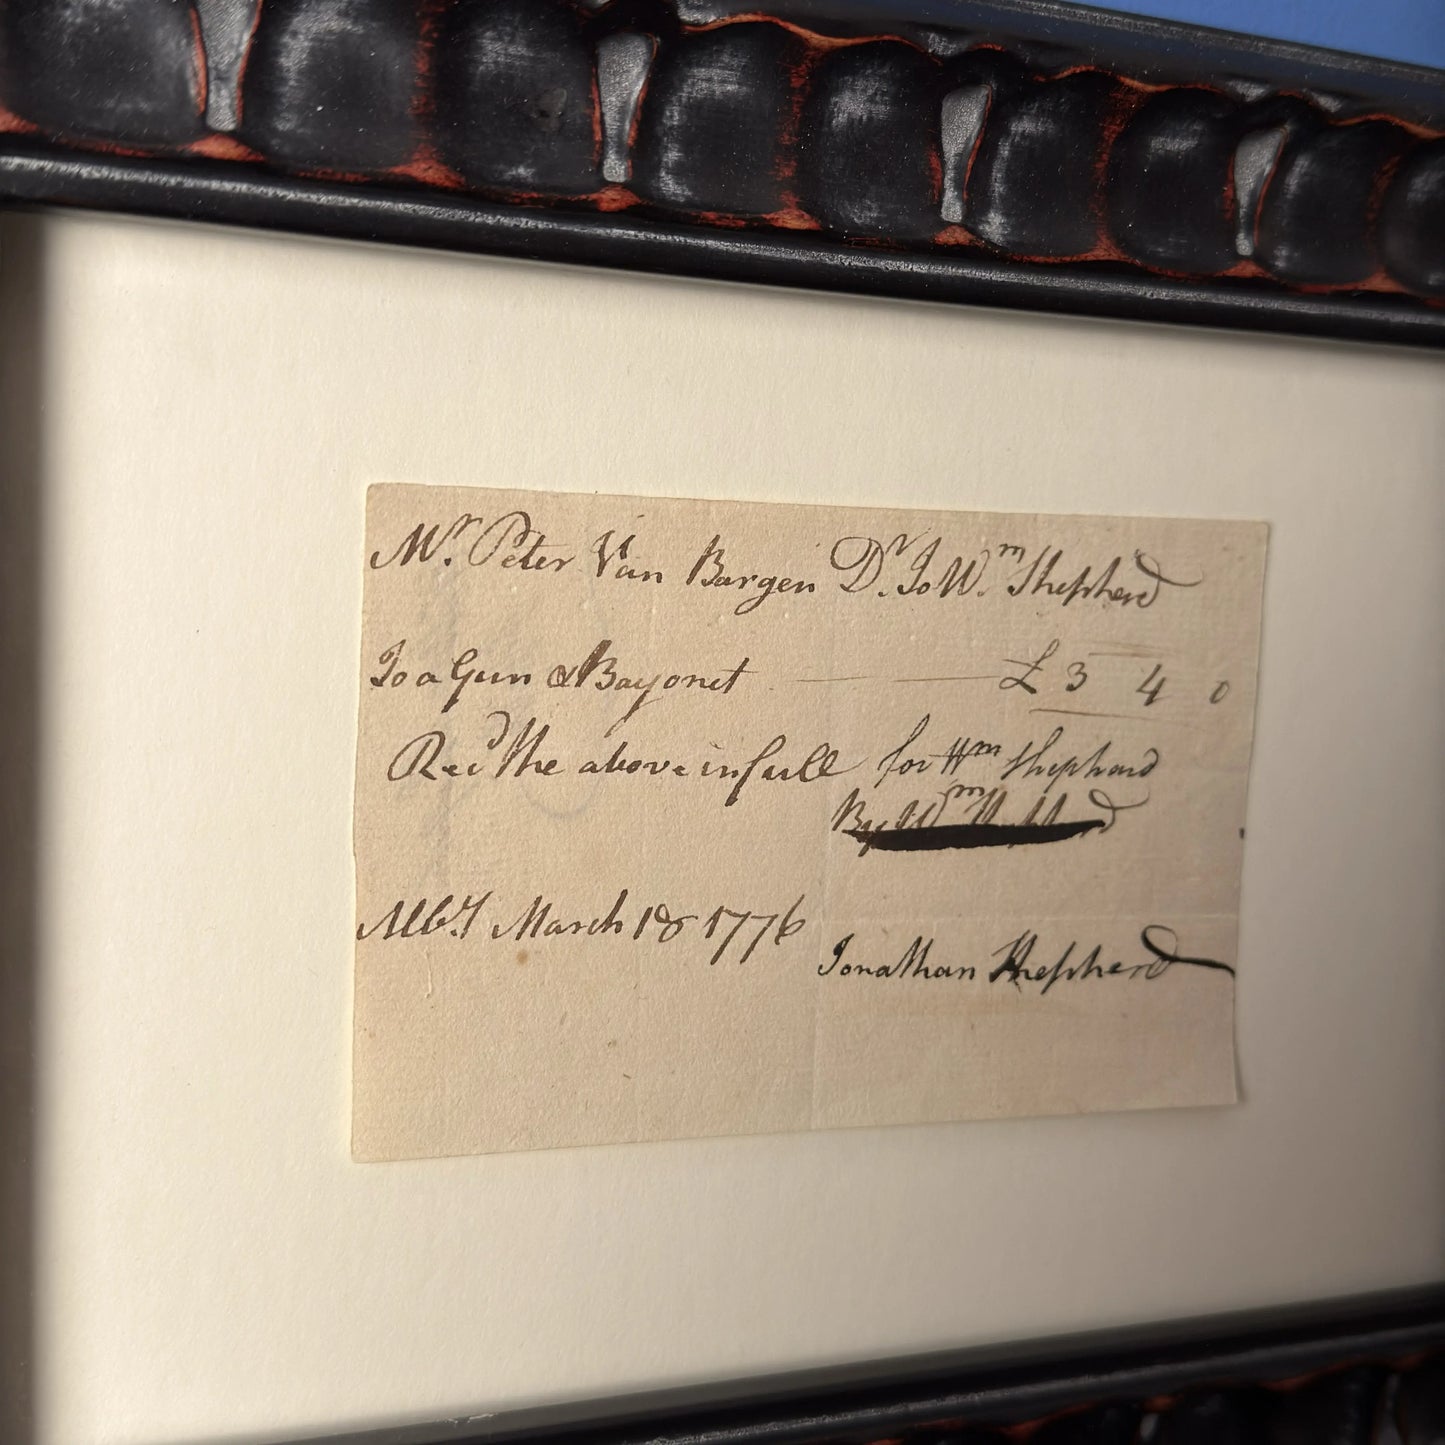 Mr. Peter Van Bargen Dr. To Wm. Shepherd
To a Gun & Bayonet £ 3 4 0
Recd the above in full for Wm Shepherd
By Wm Shepherd
Alby March 18 1776
Jonathan Shepherd